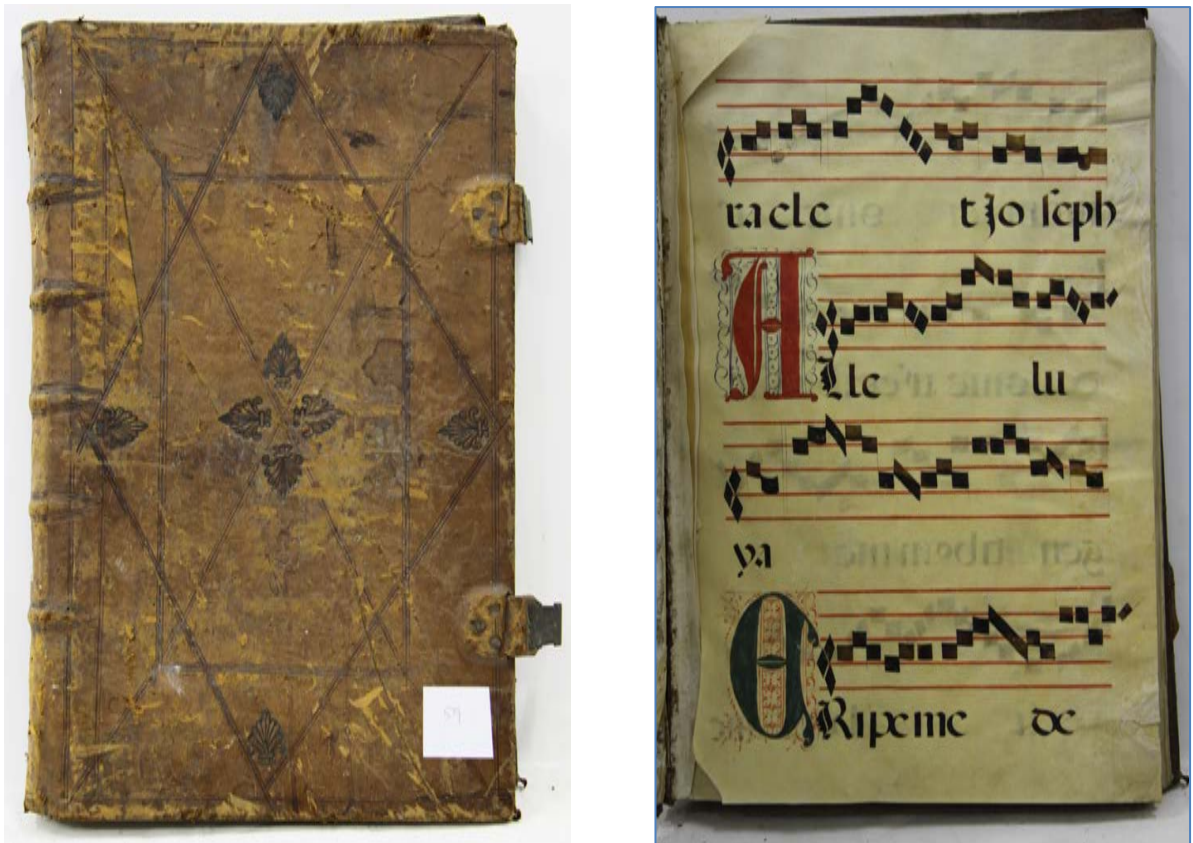 ra el e t Jo ſeph
ALle lu
ya
ERipe me de